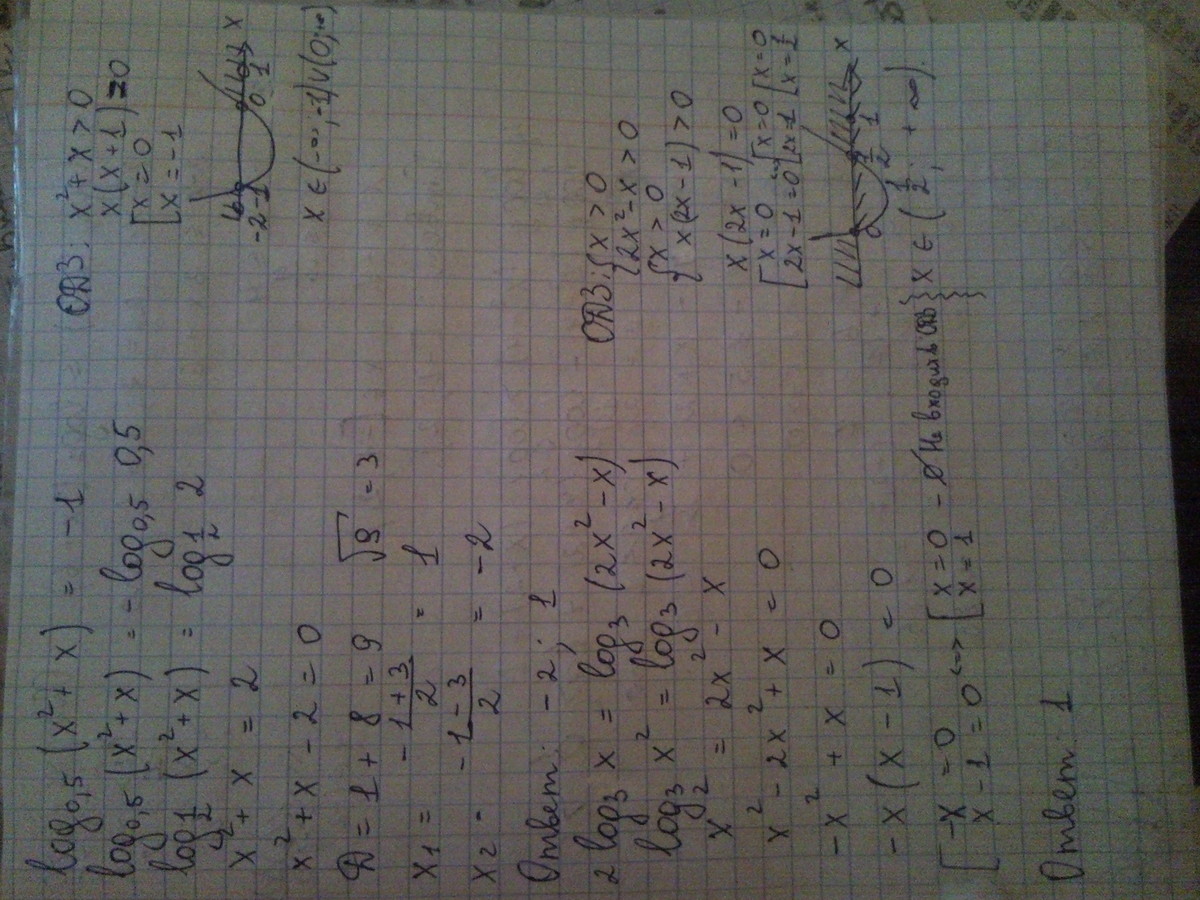 log₀,₅ (x² + x) = -1
log₀,₅ (x² + x) = - log₀,₅ 0,5
log½ (x² + x) = log½ 2
x² + x = 2
x² + x - 2 = 0
Д = 1 + 8 = 9 √9 = 3
x₁ = (-1+3)/2 = 1
x₂ = (-1-3)/2 = -2
Ответ: -2; 1
ОДЗ: x² + x > 0
x(x+1) = 0
[x = 0
[x = -1
-2 -1 0 1 x
x ∈ (-∞; -1) ∪ (0; +∞)
2 log₃ x = log₃ (2x² - x)
log₃ x² = log₃ (2x² - x)
x² = 2x² - x
x² - 2x² + x = 0
-x² + x = 0
-x(x - 1) = 0
[-x = 0 <=> [x = 0 - Не входит в ОДЗ
[x - 1 = 0 [x = 1
Ответ: 1
ОДЗ: {x > 0
{2x² - x > 0
{x > 0
{x(2x - 1) > 0
x(2x - 1) = 0
[x = 0 [x = 0 [x = 0
[2x - 1 = 0 [2x = 1 [x = ½
0 ½ 1 x
x ∈ (½; +∞).